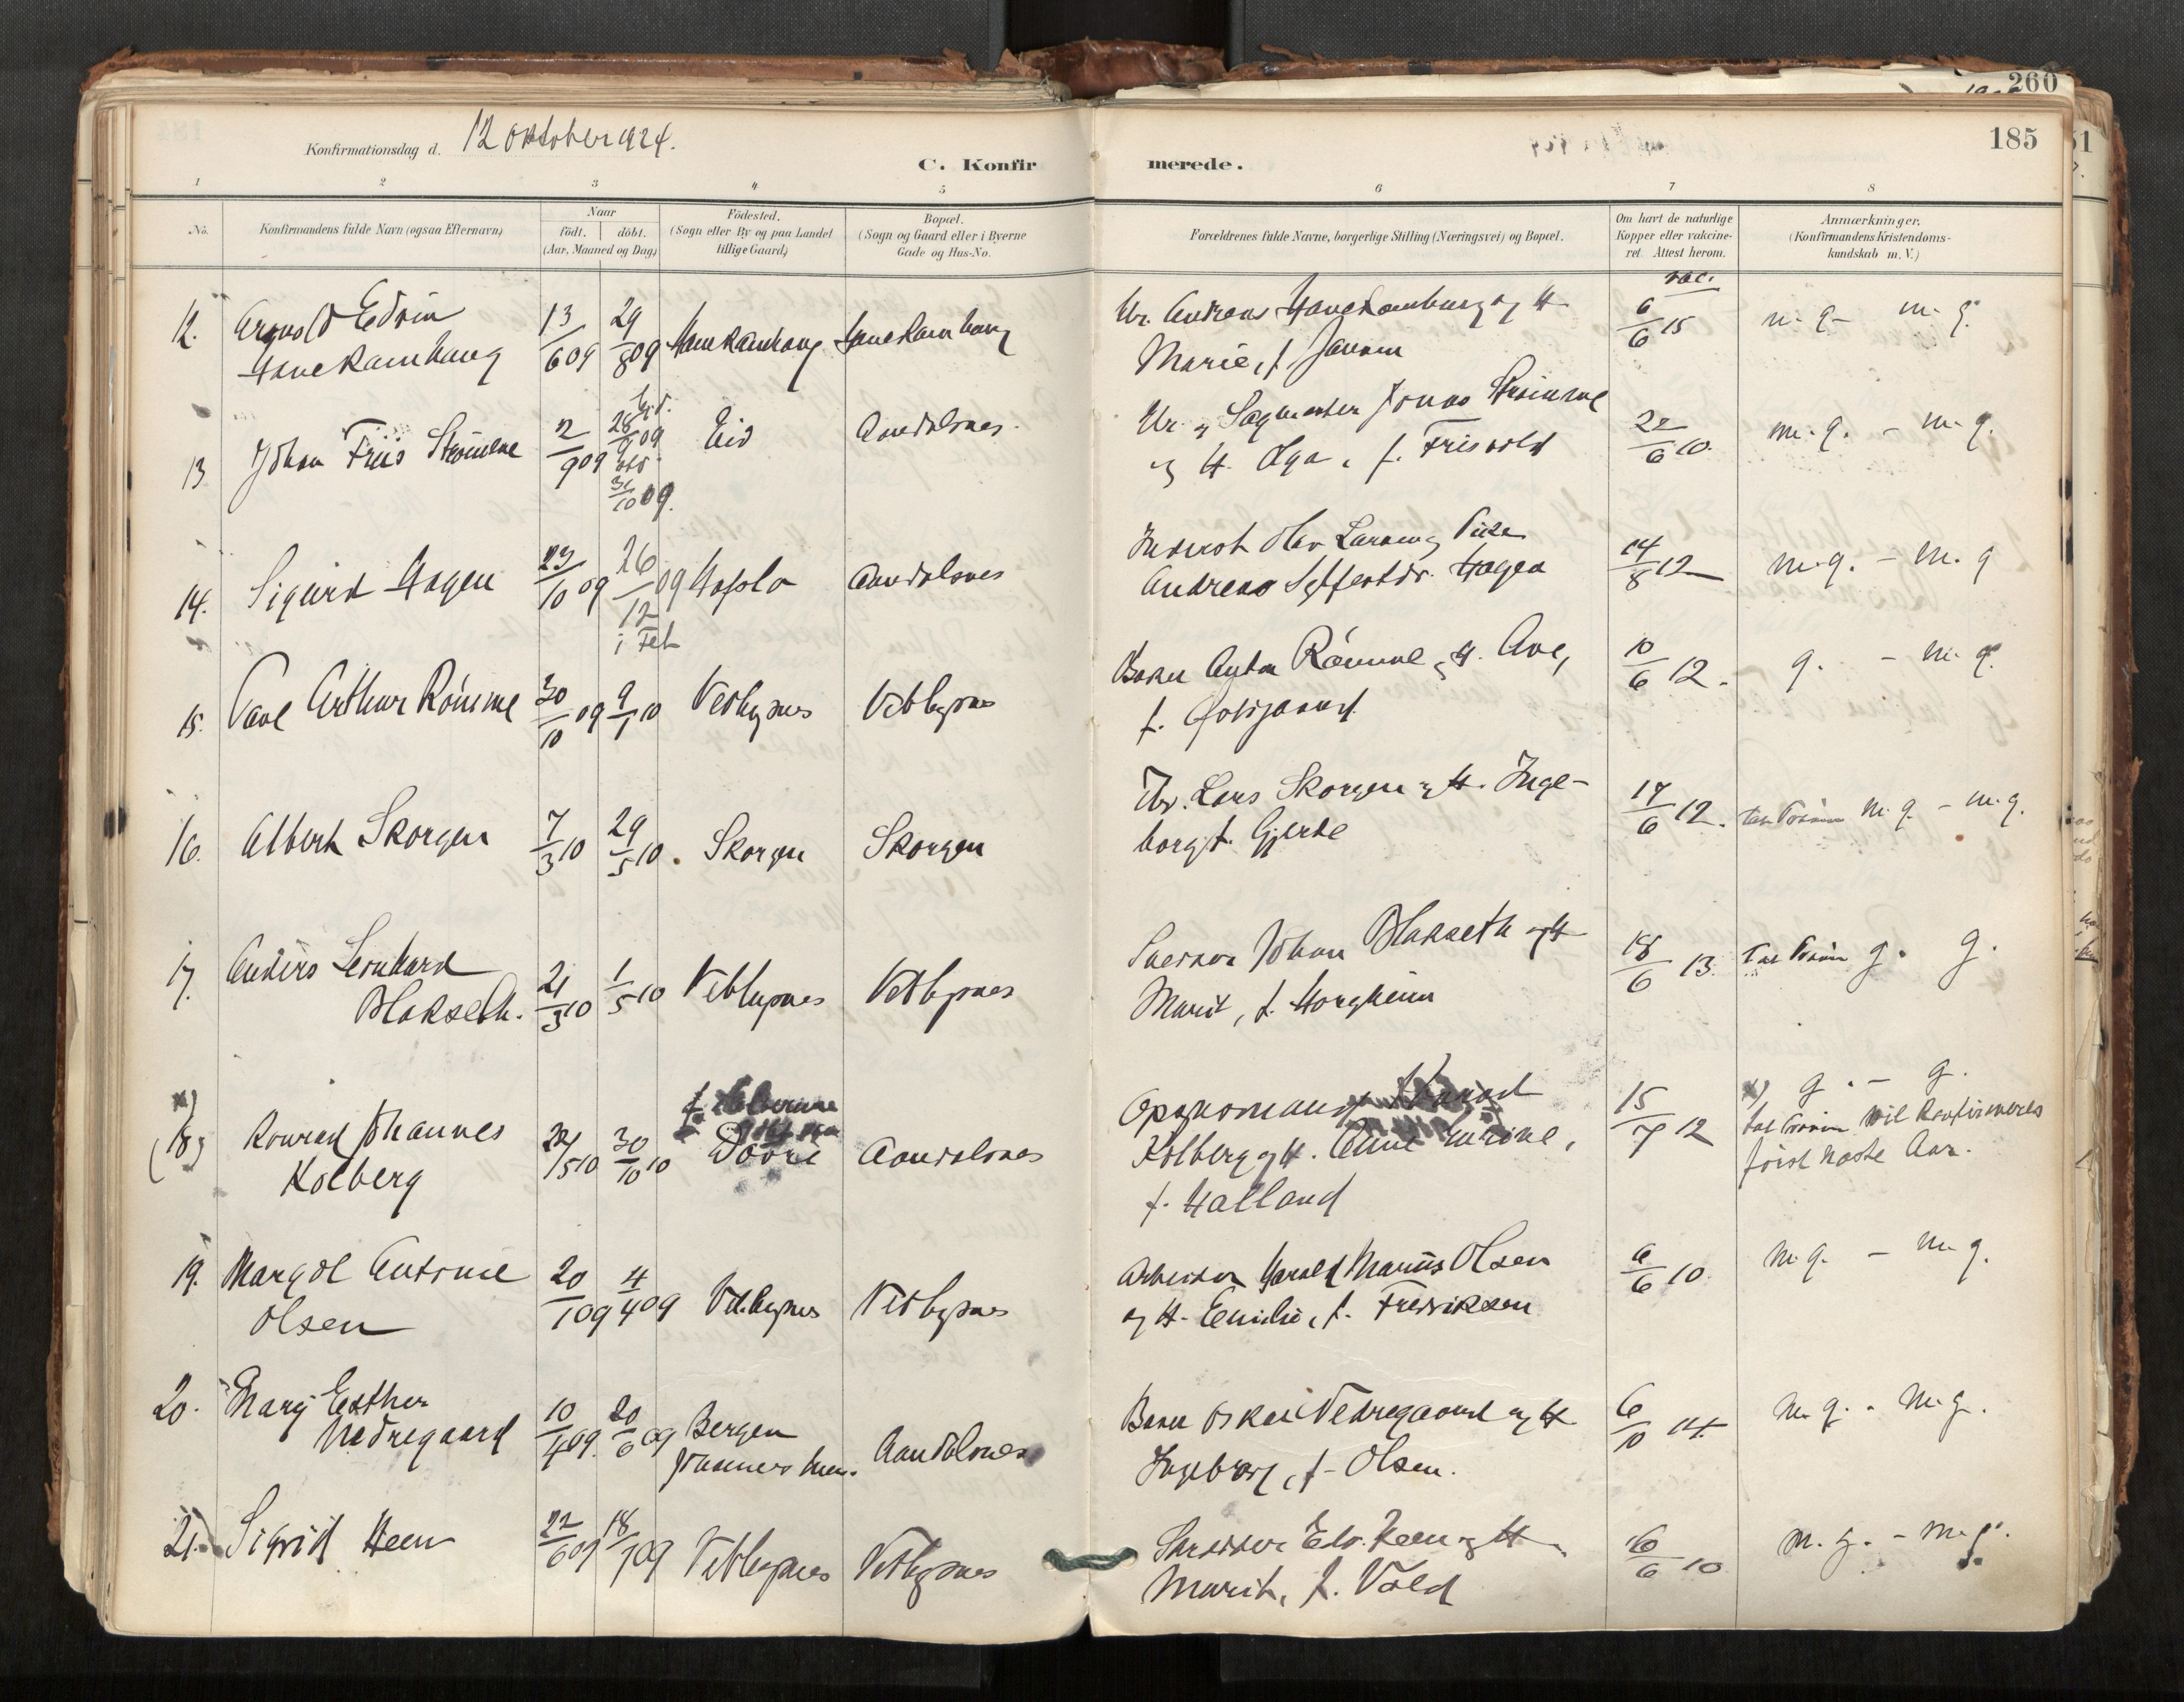 260
185
Konfirmationsdag d. 12 oktober 1924.
C. Konfirmerede.
1 2 3 4 5 6 7 8
No.
Konfirmandens fulde Navn (ogsaa Efternavn)
Naar
födt. döbt.
(Aar, Maaned og Dag)
Födested.
(Sogn eller By og paa Landet
tillige Gaard)
Bopæl.
(Sogn og Gaard eller i Byerne
Gade og Hus-No.
Forældrenes fulde Navne, borgerlige Stilling (Næringsvei) og Bopæl.
Om havt de naturlige
Kopper eller vakcine-
ret. Attest herom.
Anmærkninger.
(Konfirmandens Kristendoms-
kundskab m. V.)
vac.
12. Arnold Edvin
Hanekamhaug
13/6 09 29/8 09 Hanekamhaug Hanekamhaug
Andreas Hanekamhaug og H.
Marie, f. Jansen
6/6 15 m. g. - m. g.
13 Johan Friis Strömme
2/9 09 28/9 09
31/10 09.
Eid Aandalsnes.
Sagmester Jonas Strömme
og H. Olga, f. Frisvold
22/6 10. m. g. - m. g.
14. Sigurd Hagen
23/10 09 26/12 09 Hafslo Aandalsnes
Larsen og
Andrea Hagen
14/8 12 m. g. - m. g
15. Arthur Römme
30/10 09 9/1 10 Veblugsnes Veblugsnes
Anton Römme og H.
10/6 12. g. - m. g.
16. Albert Skorgen
7/3 10 29/5 10. Skorgen Skorgen
Lars Skorgen og H. Inge-
borg f. Gjerde
17/6 12. m. g. - m. g.
17. Anders Leonhard
Blakseth.
21/3 10 1/5 10 Veblugsnes Veblugsnes
Snekker Johan Blakseth og H
Marit, f. Horgheim
18/6 13. g. g.
x)
(18) Konrad Johannes
Kolberg
30/10 10 Dovre Aandalsnes
Opsynsmand
Kolberg og H.
f. Halland
15/7 12 x) g. - g.
vil konfirmeres
först næste Aar.
19. Margot Antonie
Olsen
20/1 09 4/4 09 Veblugsnes Veblugsnes
Arbeider Harald Marius Olsen
og H. Emilie, f. Fredriksen
6/6 10. m. g. - m. g.
20. Mary Esther
Nedregaard
10/4 09. 20/6 09 Bergen
Aandalsnes
Oskar Nedregaard og H
Ingeborg, f. Olsen.
6/10 14. m. g. - m. g.
21. Sigrid Heen
22/6 09 18/7 09 Veblugsnes Veblugsnes
Heen og H.
Marit, f. Vold
16/6 10 m. g. - m. g.